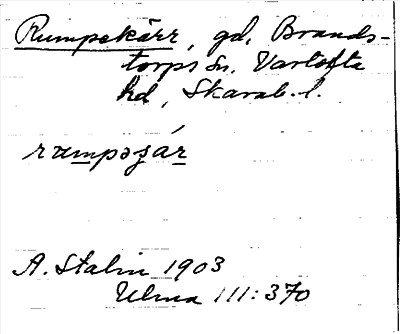 Rumpekärr, gd, Brands-
torps sn. Vartofta
hd, Skarab. l.
rumpəʂár
A. Stalin 1903
Ulma 111:370